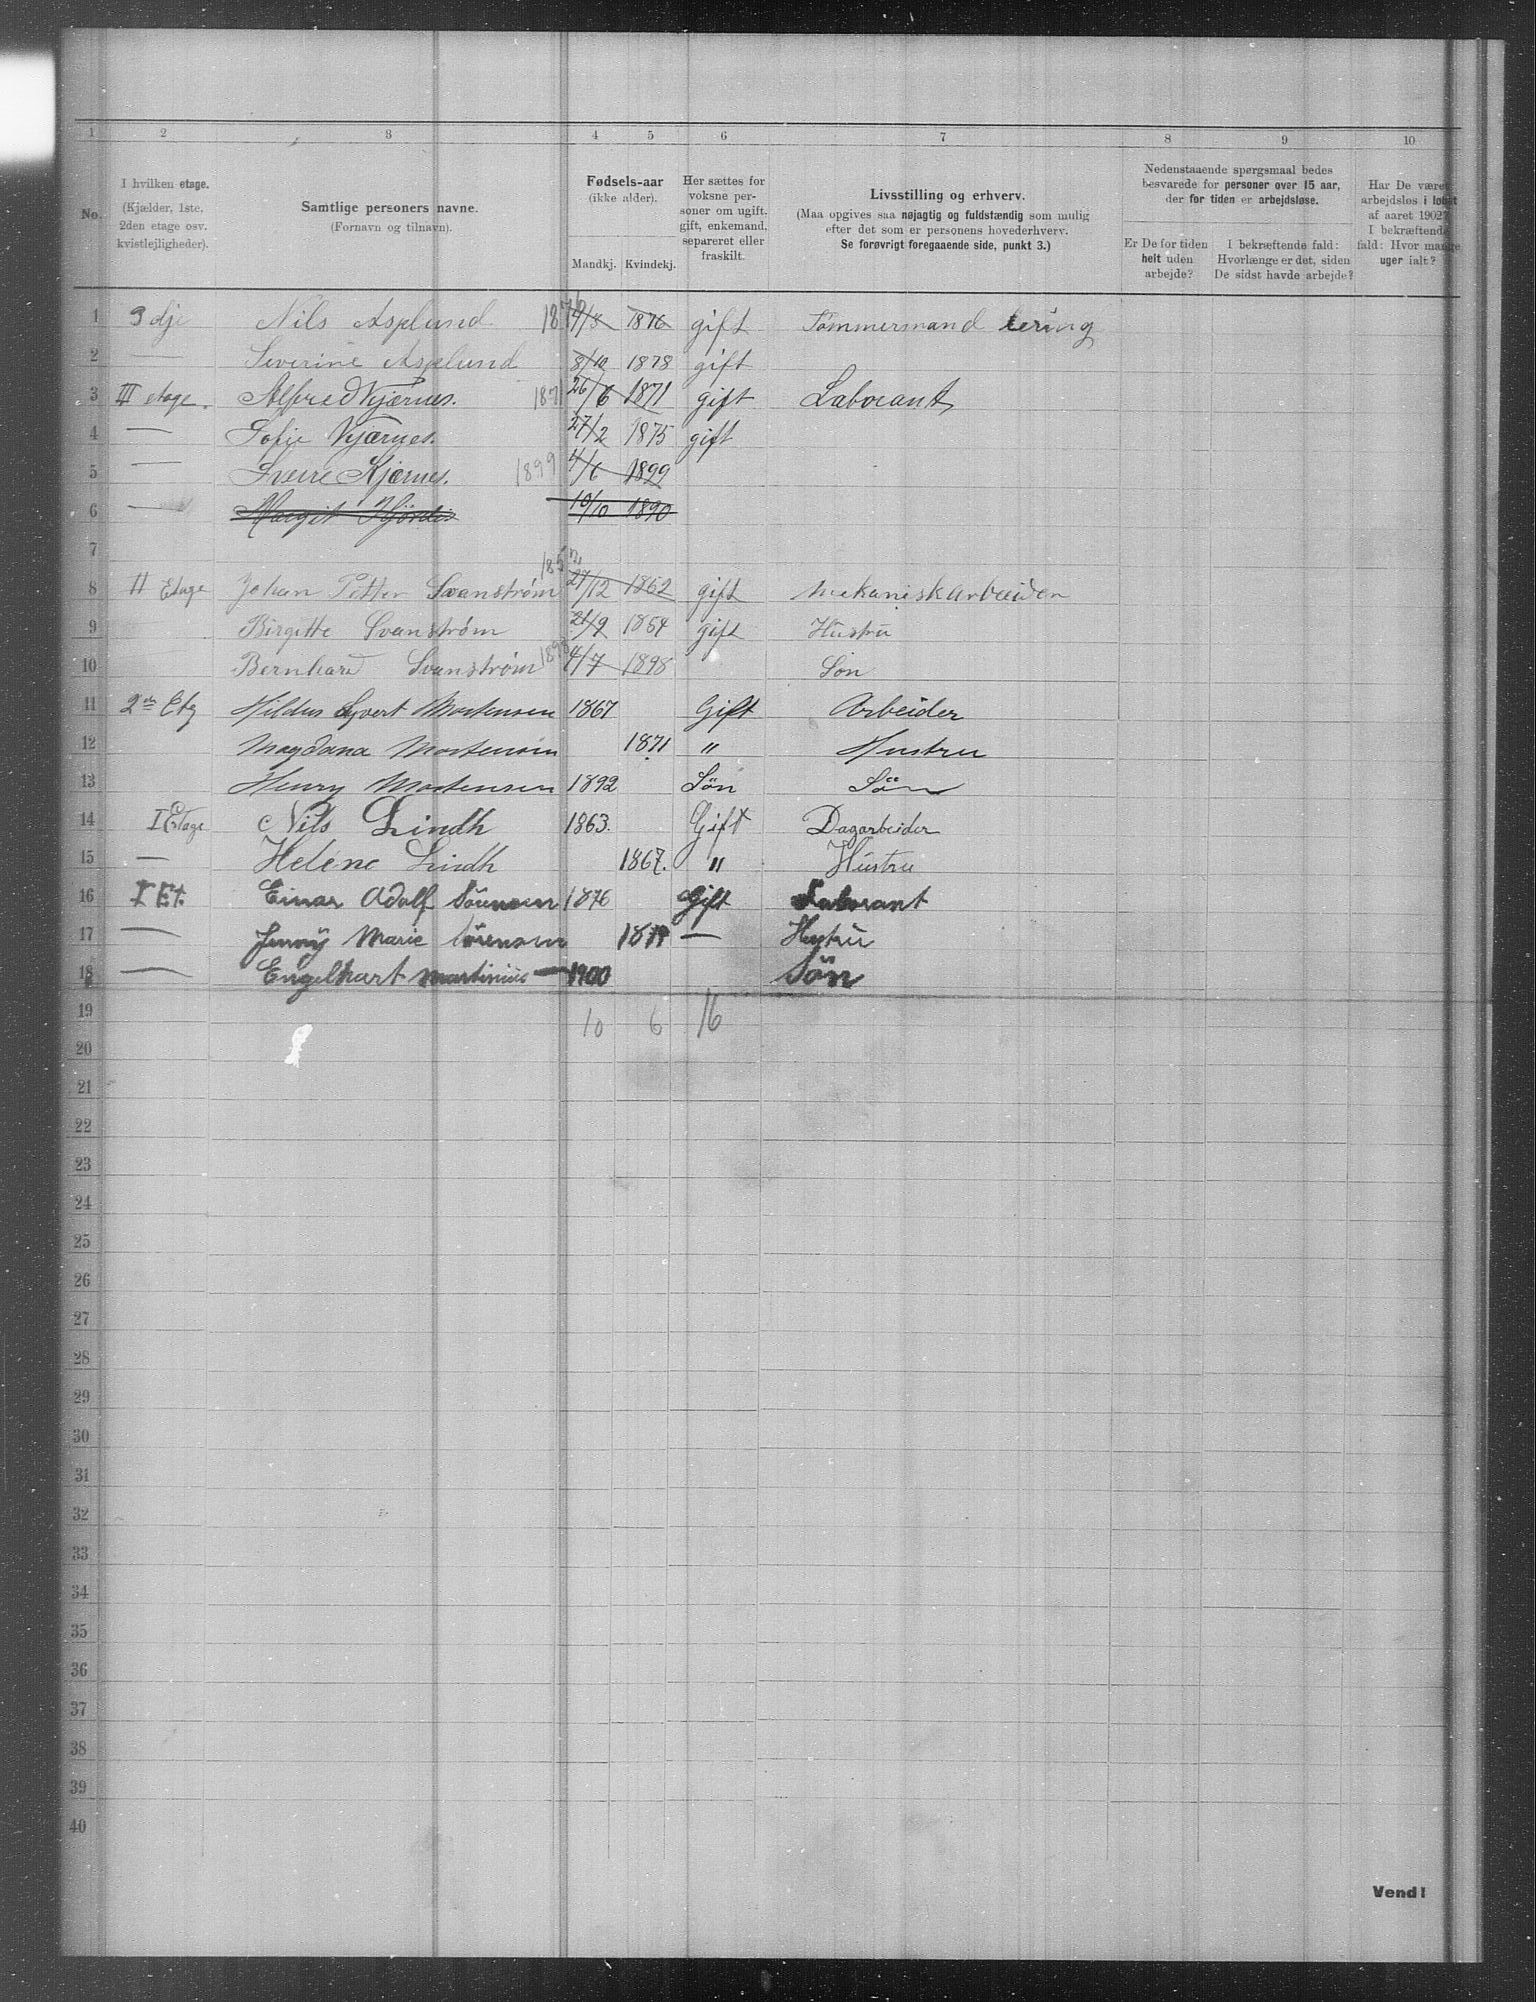 1 2 3 4 5 6 7 8 9 10
No.
I hvilken etage.
(Kjælder, 1ste,
2den etage osv.
kvistlejligheder).
Samtlige personers navne.
(Fornavn og tilnavn).
Fødsels-aar
(ikke alder).
Mandkj. Kvindekj.
Her sættes for
voksne per-
soner om ugift,
gift, enkemand,
separeret eller
fraskilt.
Livsstilling og erhverv.
(Maa opgives saa nøjagtig og fuldstændig som mulig
efter det som er personens hovederhverv.
Se forøvrigt foregaaende side, punkt 3.)
Nedenstaaende spørgsmaal bedes
besvarede for personer over 15 aar,
der for tiden er arbejdsløse.
Er De for tiden
helt uden
arbejde?
I bekræftende fald:
Hvorlænge er det, siden
De sidst havde arbejde?
Har De været
arbejdsløs i løbet
af aaret 1902?
I bekræftende
fald: Hvor mange
uger ialt?
1 3dje Nils Asplund 1876 4/8 1876 gift Tømmermand
2 — Severine Asplund 8/10 1878 gift
3 III etage. Alfred Kjærnes. 1871 26/6 1871 gift Laborant
4 — Sofie Kjærnes. 27/2 1875 gift
5 — Sverre Kjærnes. 1899 4/6 1899
6 — Margit Hjördis 10/10 1890
7
8 II Etage Johan Petter Svanstrøm 27/12 1862 gift Mekaniskarbeider
9 Birgitte Svanstrøm 21/9 1854 gift Hustru
10 Bernhard Svanstrøm 1898 4/7 1898 Søn
11 2den Etg Hildus Syvert Mortensen 1867 Gift Arbeider
12 Magdana Mortensen 1871 " Hustru
13 Henry Mortensen 1892 Søn Søn
14 I Etage Nils Lindh 1863. Gift Dagarbeider
15 — Helene Lindh 1867. " Hustru
16 I Et. Einar Adolf Sörensen 1876 Gift Laborant
17 — Jenny Marie Sörensen 1879 — Hustru
18 — Engelhart Martinius — 1900 Sön
19 10 6 16
20
21
22
23
24
25
26
27
28
29
30
31
32
33
34
35
36
37
38
39
40
Vend!